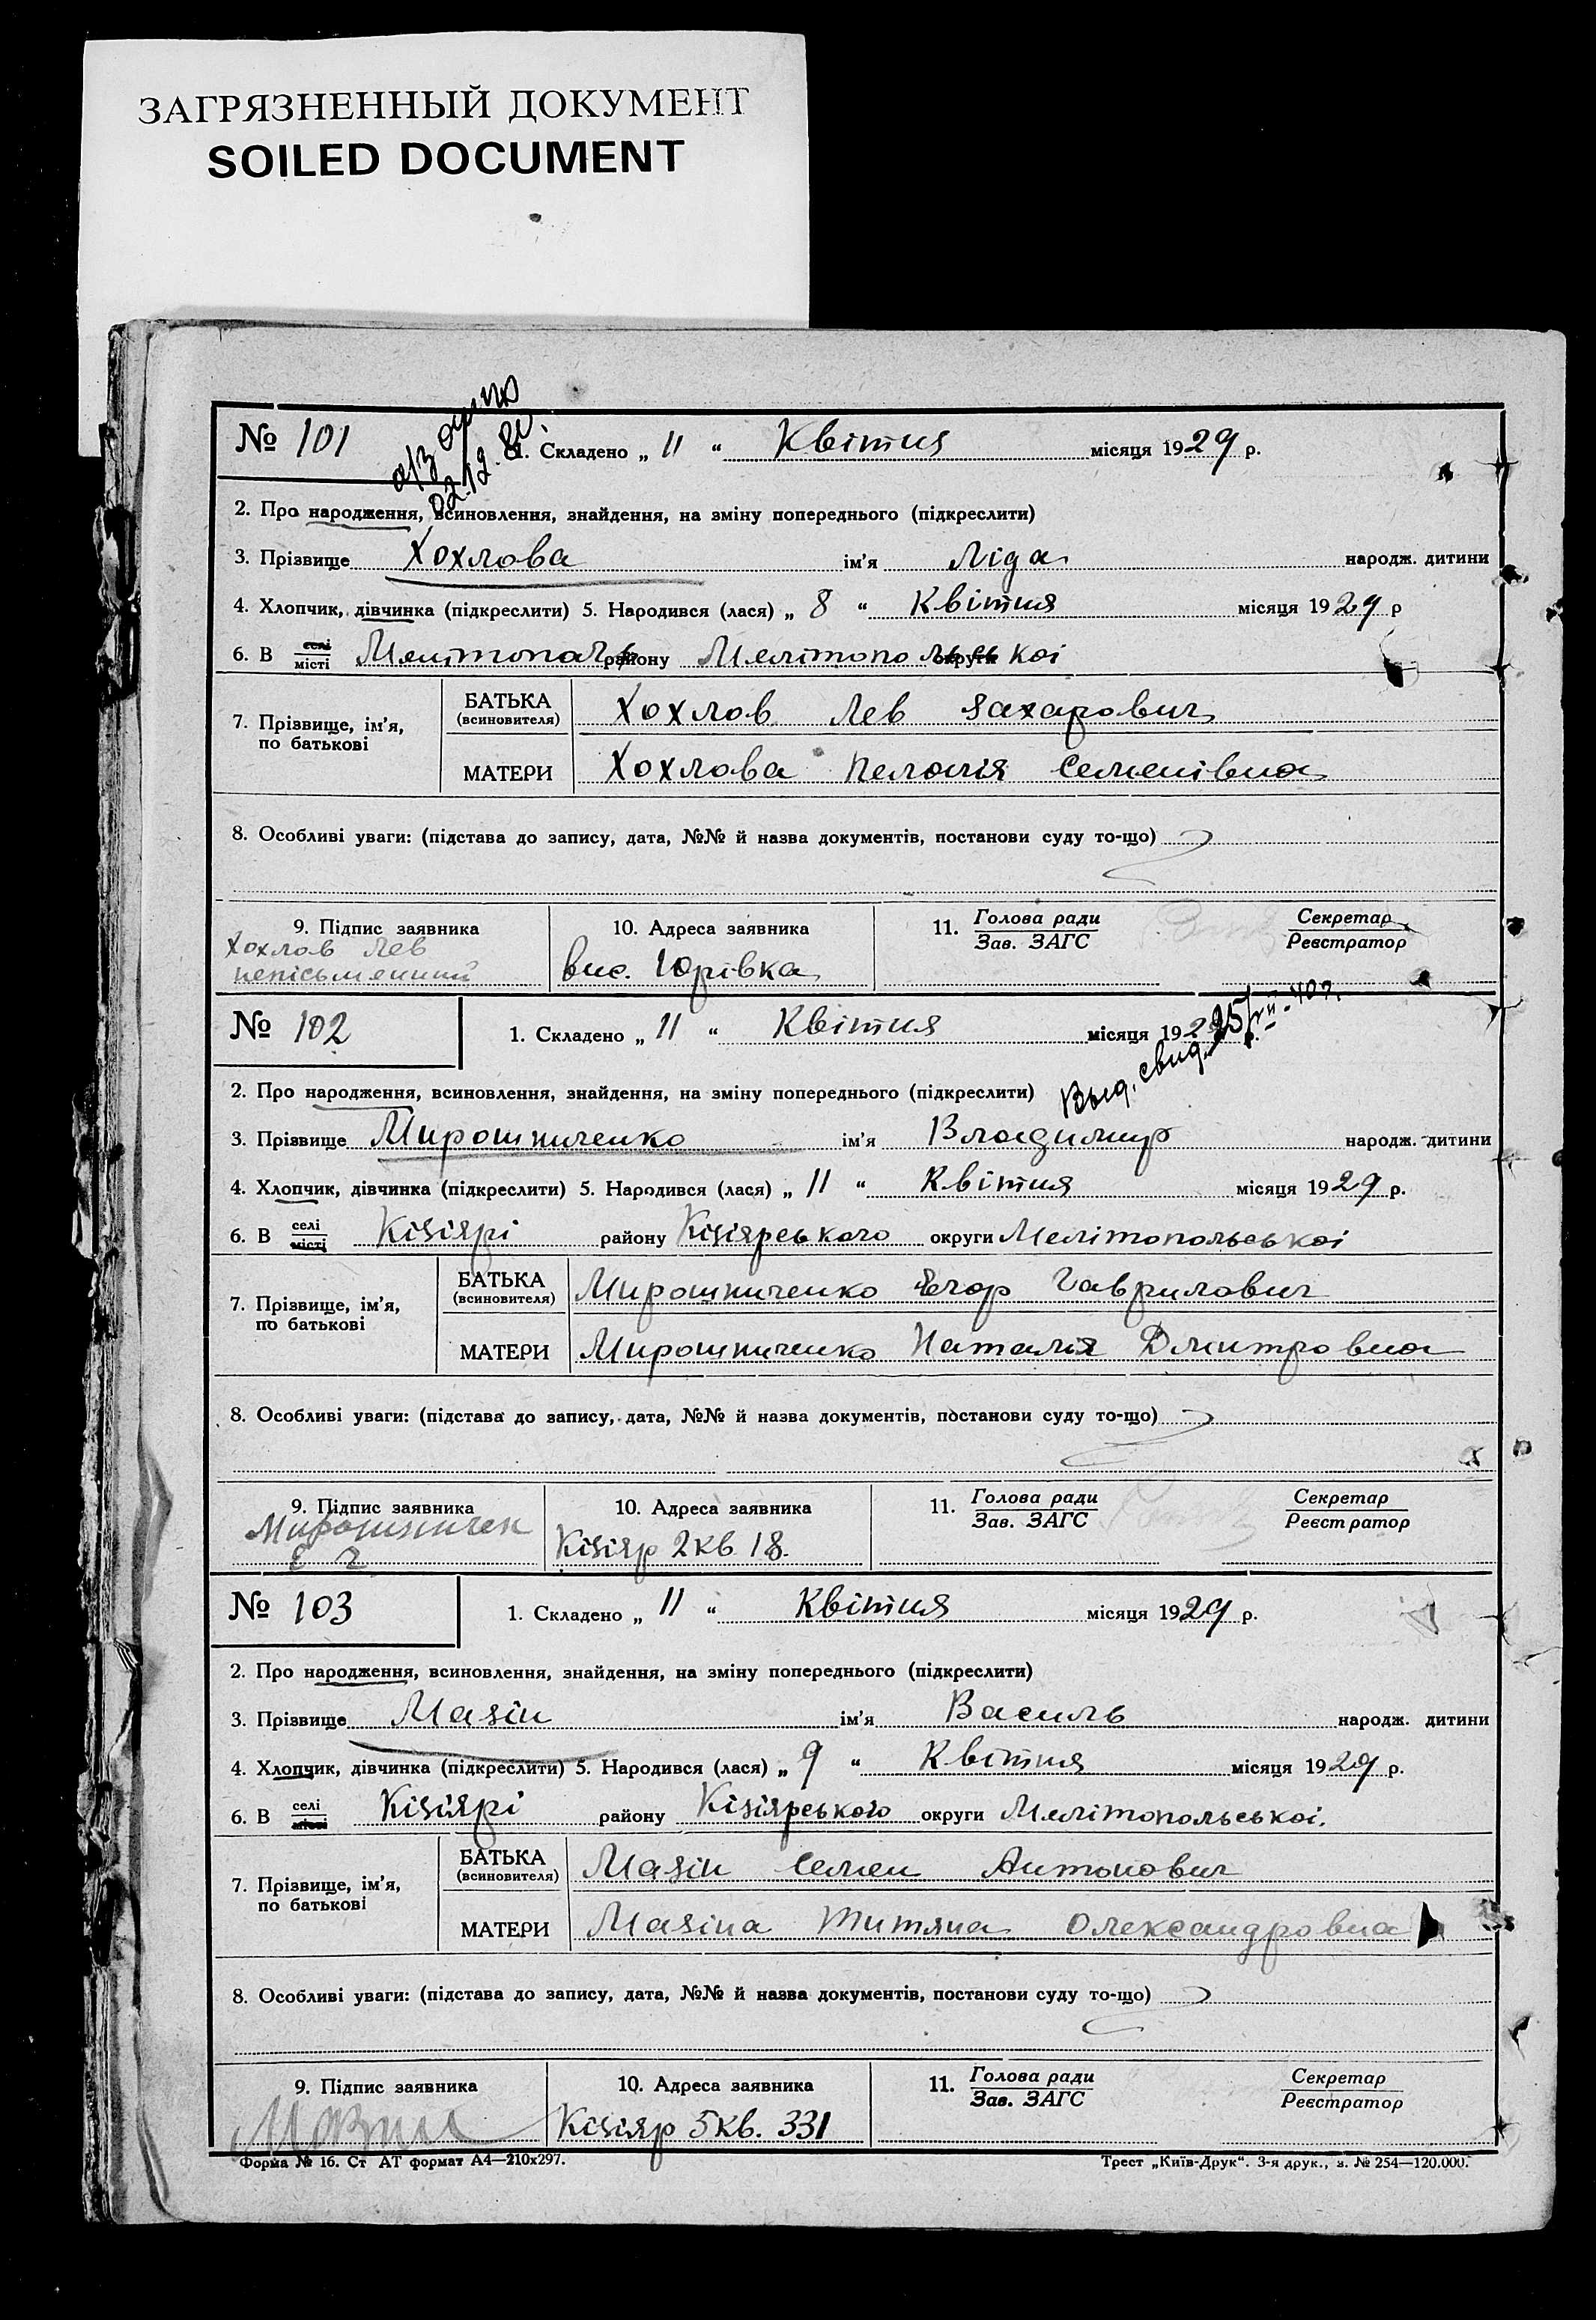 ЗАГРЯЗНЕННЫЙ ДОКУМЕНТ
SOILED DOCUMENT
№ 101
1. Складено „ 11 “ Квітня місяця 1929 р.
2. Про народження, всиновлення, знайдення, на зміну попереднього (підкреслити)
3. Прізвище Хохлова ім’я Ліда народж. дитини
4. Хлопчик, дівчинка (підкреслити) 5. Народився (лася) „ 8 “ Квітня місяця 1929 р
6. В селі місті Мелітополь району Мелітопольської округи
7. Прізвище, ім’я, по батькові
БАТЬКА (всиновителя) Хохлов Лев Захарович
МАТЕРИ Хохлова Пелагія Семенівна
8. Особливі уваги: (підстава до запису, дата, №№ й назва документів, постанови суду то-що)
9. Підпис заявника 10. Адреса заявника 11. Голова ради Зав. ЗАГС Секретар Реєстратор
Хохлов Лев
непісьменний вис. Юрівка
№ 102
1. Складено „ 11 “ Квітня місяця 1929 р.
Выд. свид. 25/VII-40г.
2. Про народження, всиновлення, знайдення, на зміну попереднього (підкреслити)
3. Прізвище Мирошниченко ім’я Владимир народж. дитини
4. Хлопчик, дівчинка (підкреслити) 5. Народився (лася) „ 11 “ Квітня місяця 1929 р.
6. В селі місті Кізіярі району Кізіярського округи Мелітопольської
7. Прізвище, ім’я, по батькові
БАТЬКА (всиновителя) Мирошниченко Егор Гаврилович
МАТЕРИ Мирошниченко Наталія Дмитровна
8. Особливі уваги: (підстава до запису, дата, №№ й назва документів, постанови суду то-що)
9. Підпис заявника 10. Адреса заявника 11. Голова ради Зав. ЗАГС Секретар Реєстратор
Мирошничен
Е Г Кізіяр 2кв 18.
№ 103
1. Складено „ 11 “ Квітня місяця 1929 р.
2. Про народження, всиновлення, знайдення, на зміну попереднього (підкреслити)
3. Прізвище Мазін ім’я Василь народж. дитини
4. Хлопчик, дівчинка (підкреслити) 5. Народився (лася) „ 9 “ Квітня місяця 1929 р.
6. В селі місті Кізіярі району Кізіярського округи Мелітопольської.
7. Прізвище, ім’я, по батькові
БАТЬКА (всиновителя) Мазін Семен Антонович
МАТЕРИ Мазіна Титяна Олександровна
8. Особливі уваги: (підстава до запису, дата, №№ й назва документів, постанови суду то-що)
9. Підпис заявника 10. Адреса заявника 11. Голова ради Зав. ЗАГС Секретар Реєстратор
Мазин Кізіяр 5кв. 331
Форма № 16. Ст АТ формат А4—210х297. Трест „Київ-Друк“. 3-я друк., з. № 254—120.000.